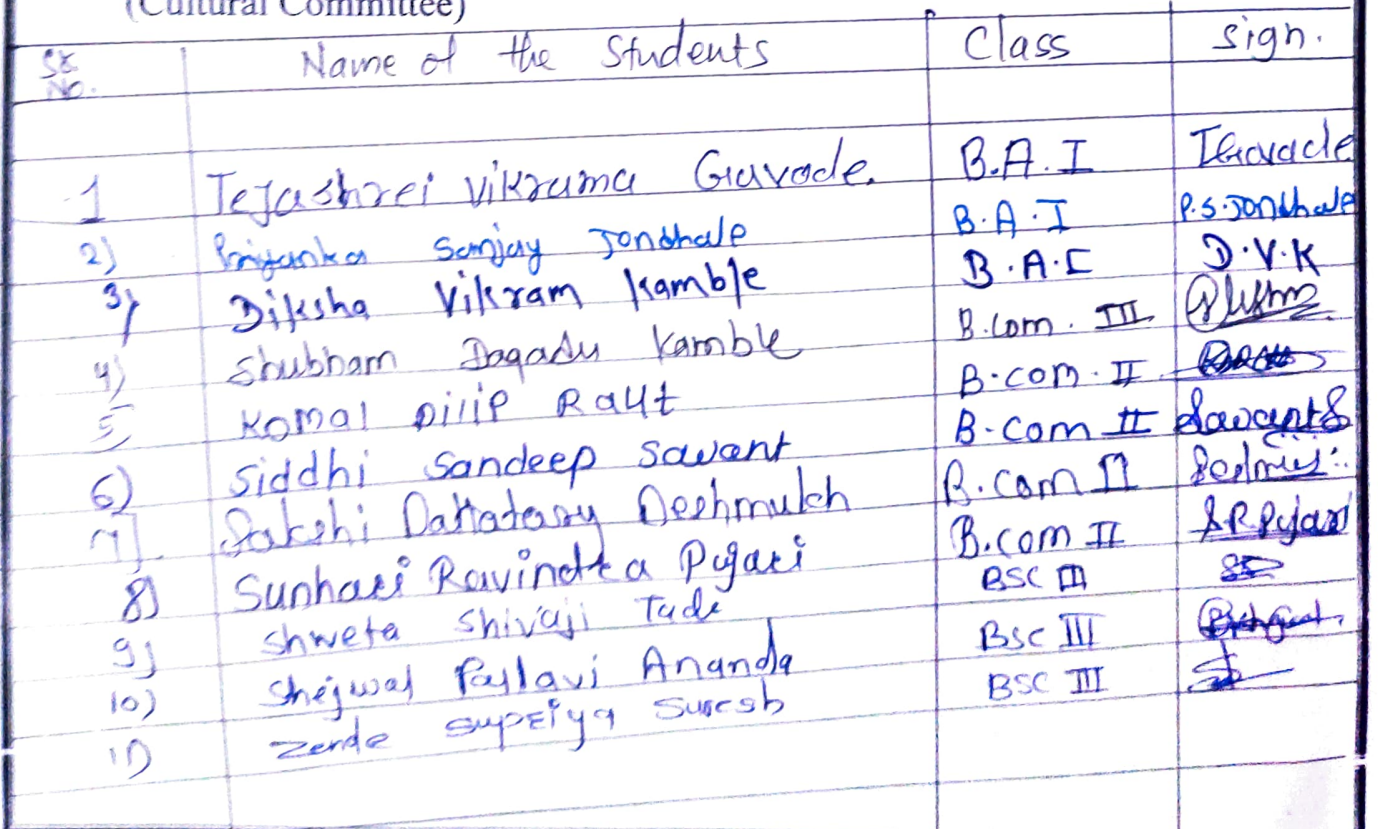 (Cultural Committee)
Sr. No. Name of the Students Class Sign.
1 Tejashrei Vikrama Gavade. B.A.I TGavade
2) Priyanka Sanjay Jondhale B.A.I P.S.Jondhale
3) Diksha Vikram Kamble B.A.I D.V.K
4) Shubham Dagadu Kamble B.com. III
5 Komal Dilip Raut B.com. II
6) Siddhi Sandeep Sawant B.com II SawantS
7) Sakshi Dattatray Deshmukh B.com II
8) Sunhari Ravindra Pujari B.com II S.R.Pujari
9) Shweta Shivaji Tade BSC III
10) Shejwal Pallavi Ananda BSC III
11) Zende Supriya Suresh BSC III